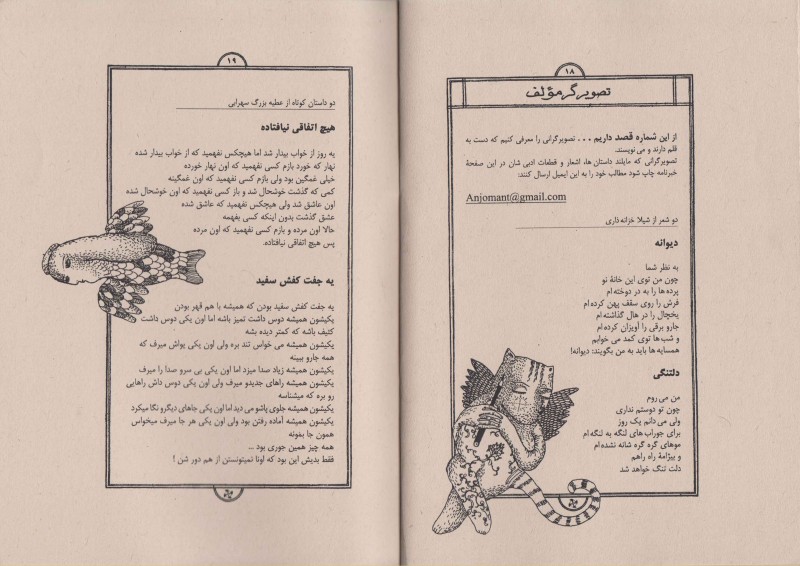 ۱۸
تصویرگر مؤلف
از این شماره قصد داریم . . . تصویرگرانی را معرفی کنیم که دست به
قلم دارند و می نویسند.
تصویرگرانی که مایلند داستان ها، اشعار و قطعات ادبی شان در این صفحهٔ
خبرنامه چاپ شود مطالب خود را به این ایمیل ارسال کنند:
Anjomant@gmail.com
دو شعر از شیلا خزانه داری
دیوانه
به نظر شما
چون من توی این خانهٔ نو
پرده ها را به در دوخته ام
فرش را روی سقف پهن کرده ام
یخچال را در هال گذاشته ام
جارو برقی را آویزان کرده ام
و شب ها توی کمد می خوابم
همسایه ها باید به من بگویند: دیوانه!
دلتنگی
من می روم
چون تو دوستم نداری
ولی می دانم یک روز
برای جوراب های لنگه به لنگه ام
موهای گره گره شانه نشده ام
و پیژامهٔ راه راهم
دلت تنگ خواهد شد
۱۹
دو داستان کوتاه از عطیه بزرگ سهرابی
هیچ اتفاقی نیافتاده
یه روز از خواب بیدار شد اما هیچکس نفهمید که از خواب بیدار شده
نهار که خورد بازم کسی نفهمید که اون نهار خورده
خیلی غمگین بود ولی بازم کسی نفهمید که اون غمگینه
کمی که گذشت خوشحال شد و باز کسی نفهمید که اون خوشحال شده
اون عاشق شد ولی هیچکس نفهمید که عاشق شده
عشق گذشت بدون اینکه کسی بفهمه
حالا اون مرده و بازم کسی نفهمید که اون مرده
پس هیچ اتفاقی نیافتاده.
یه جفت کفش سفید
یه جفت کفش سفید بودن که همیشه با هم قهر بودن
یکیشون همیشه دوس داشت تمیز باشه اما اون یکی دوس داشت
کثیف باشه که کمتر دیده بشه
یکیشون همیشه می خواس تند بره ولی اون یکی یواش میرف که
همه جارو ببینه
یکیشون همیشه زیاد صدا میزد اما اون یکی بی سرو صدا را میرف
یکیشون همیشه راهای جدیدو میرف ولی اون یکی دوس داش راهایی
رو بره که میشناسه
یکیشون همیشه جلوی پاشو می دید اما اون یکی جاهای دیگرو نگا میکرد
یکیشون همیشه آماده رفتن بود ولی اون یکی هر جا میرف میخواس
همون جا بمونه
همه چیز همین جوری بود ...
فقط بدیش این بود که اونا نمیتونستن از هم دور شن !